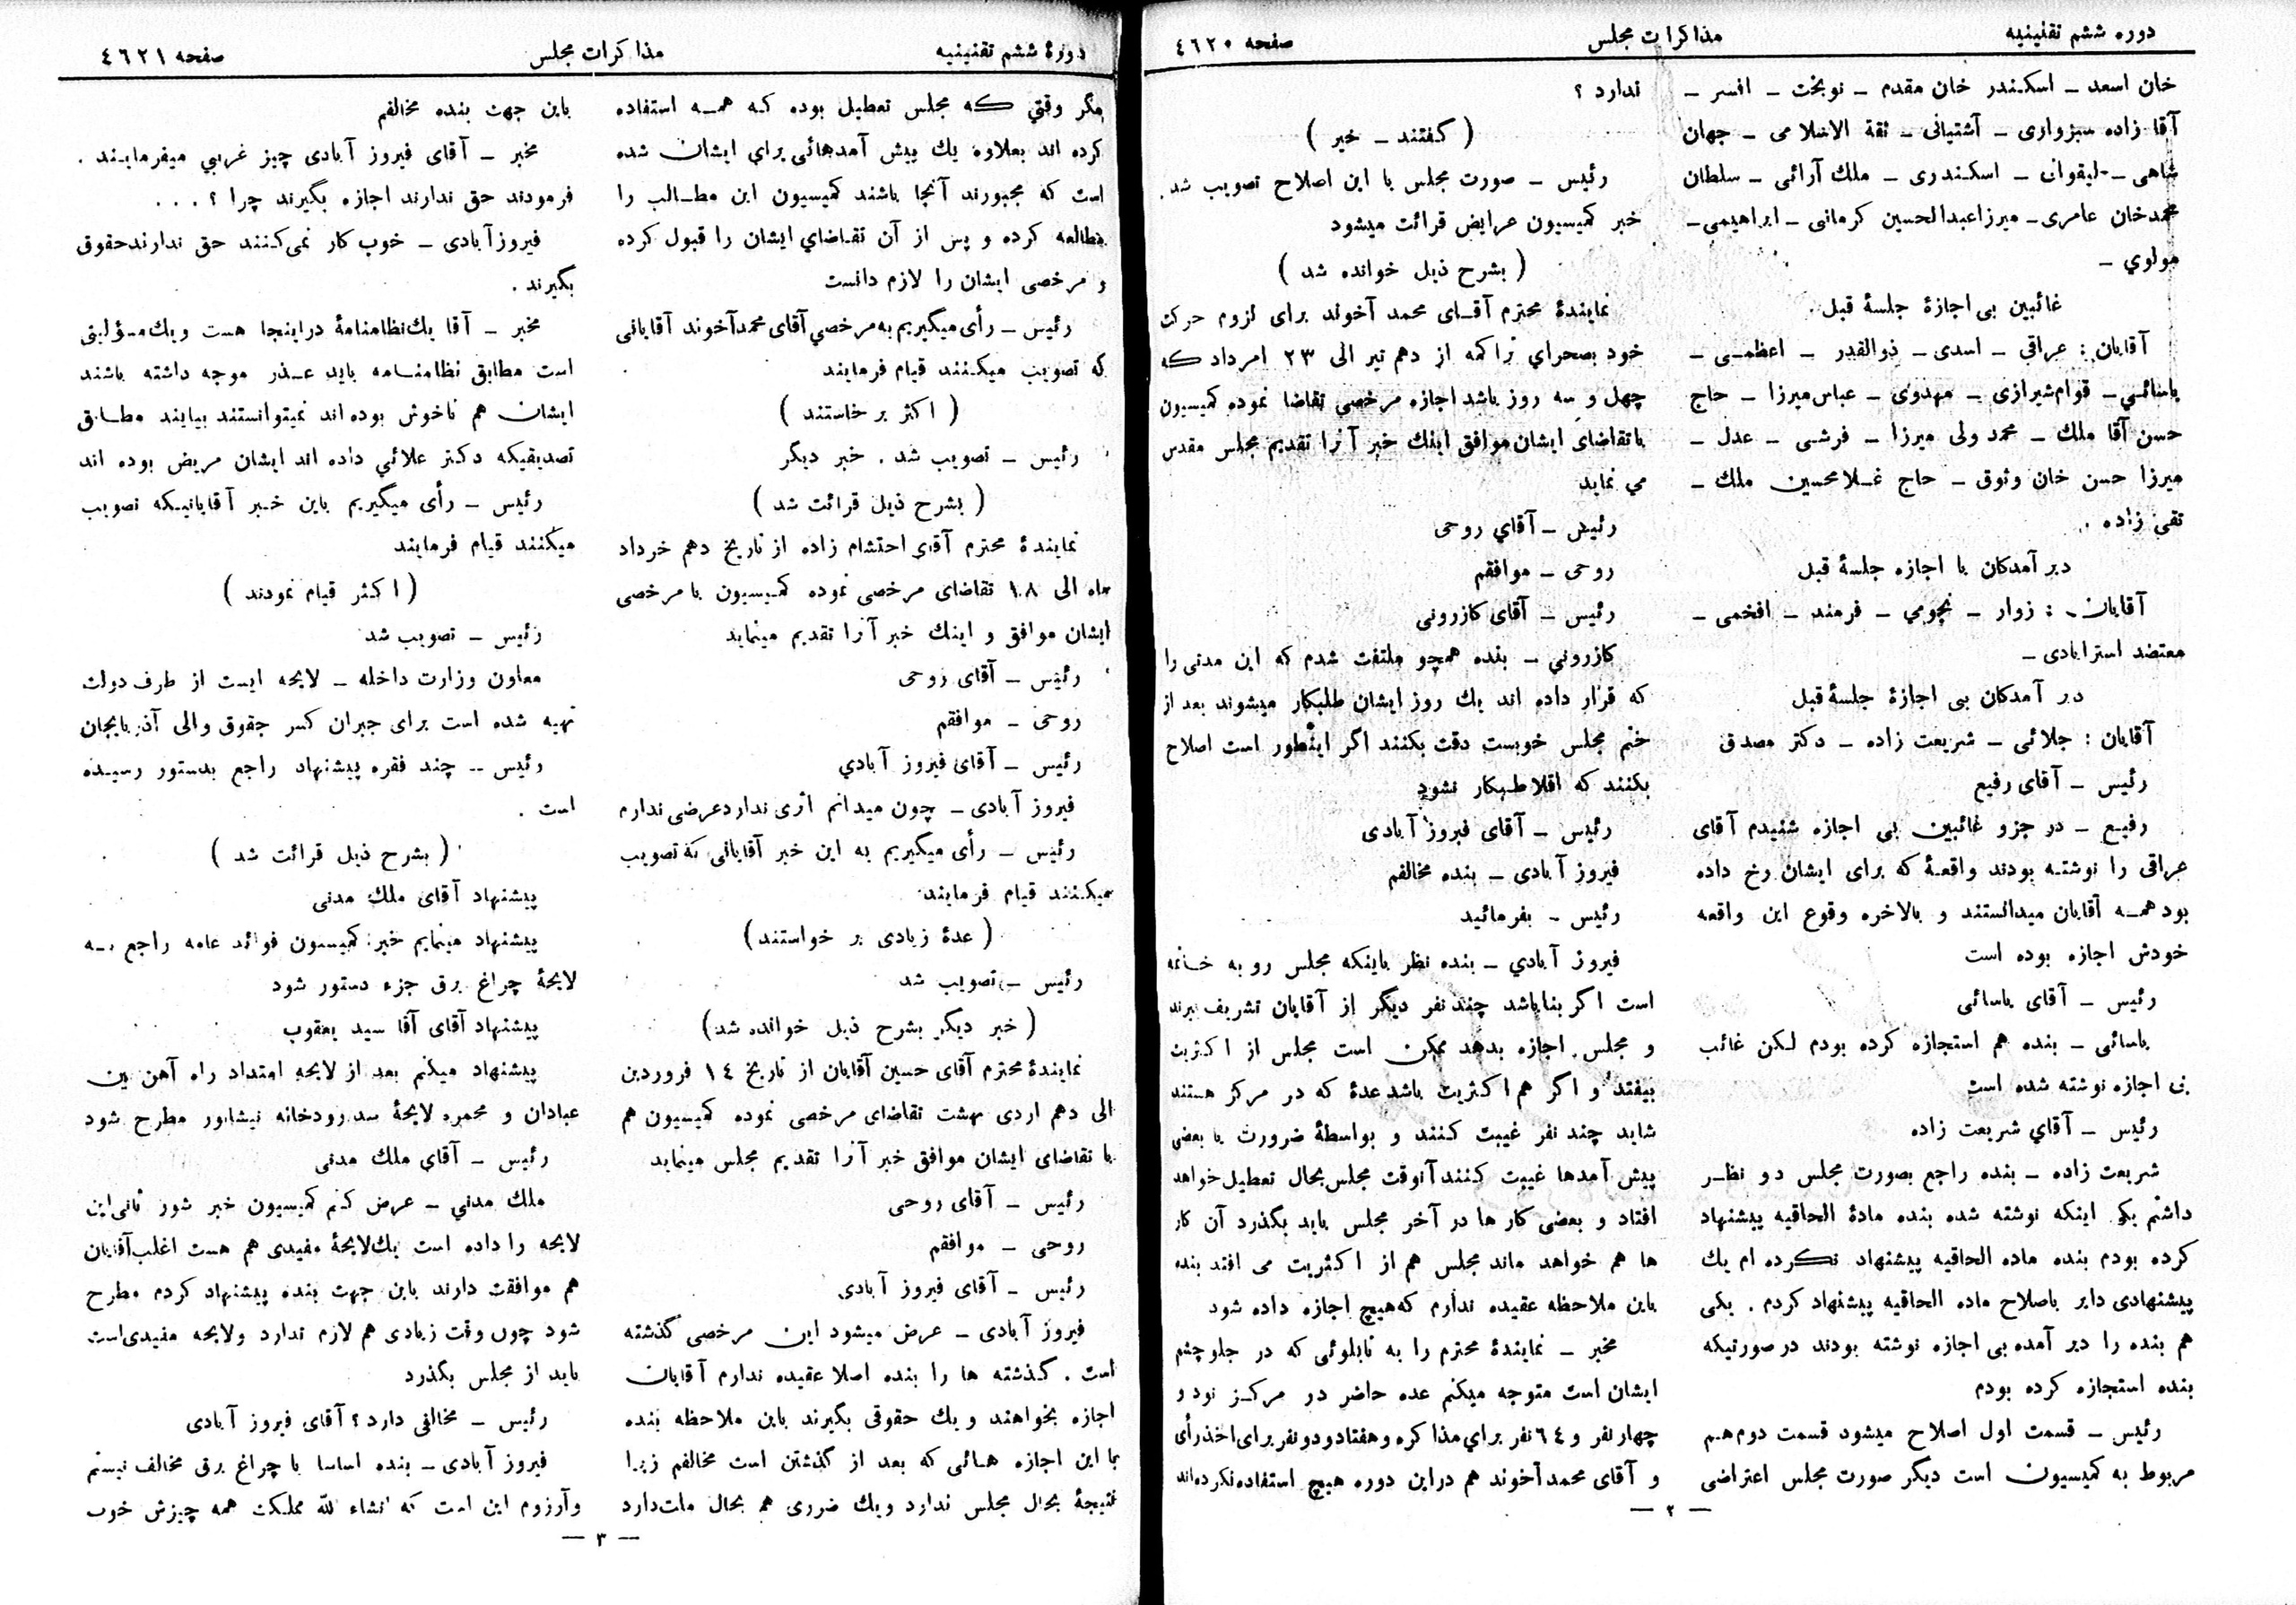 دوره ششم تقنینیه
مذاکرات مجلس
صفحه ٤٦٢٠
خان اسعد ـ اسکندر خان مقدم ـ نوبخت ـ افسر ـ
آقا زاده سبزواری ـ آشتیانی ـ ثقة الاسلامی ـ جهان
شاهی ـ لیقوان ـ اسکندری ـ ملك آرائی ـ سلطان
محمدخان عامری ـ میرزاعبدالحسین کرمانی ـ ابراهیمی ـ
مولوي ـ
غائبین بی اجازهٔ جلسهٔ قبل
آقایان : عراقي ـ اسدی ـ ذوالقدر ـ اعظمی ـ
یاسائي ـ قوام شیرازی ـ مهدوی ـ عباس میرزا ـ حاج
حسن آقا ملك ـ محمد ولی میرزا ـ فرشی ـ عدل ـ
میرزا حسن خان وثوق ـ حاج غلامحسین ملك ـ
تقی زاده .
دیر آمدکان با اجازه جلسهٔ قبل
آقایان : زوار ـ نجومي ـ فرمند ـ افخمی ـ
معتضد استرابادی ـ
دیر آمدکان بی اجازهٔ جلسهٔ قبل
آقایان : جلائی ـ شریعت زاده ـ دکتر مصدق
رئیس ـ آقای رفیع
رفیع ـ در جزو غائبین بی اجازه شنیدم آقای
عراقی را نوشته بودند واقعهٔ که برای ایشان رخ داده
بود همه آقایان میدانستند و بالاخره وقوع این واقعه
خودش اجازه بوده است
رئیس ـ آقای یاسائی
یاسائی ـ بنده هم استجازه کرده بودم لکن غائب
بی اجازه نوشته شده است
رئیس ـ آقاي شریعت زاده
شریعت زاده ـ بنده راجع بصورت مجلس دو نظر
داشتم یکی اینکه نوشته شده بنده مادهٔ الحاقیه پیشنهاد
کرده بودم بنده ماده الحاقیه پیشنهاد نکرده ام یك
پیشنهادی دایر باصلاح ماده الحاقیه پیشنهاد کردم . یکی
هم بنده را دیر آمده بی اجازه نوشته بودند در صورتیکه
بنده استجازه کرده بودم
رئیس ـ قسمت اول اصلاح میشود قسمت دوم هم
مربوط به کمیسیون است دیگر صورت مجلس اعتراضی
ندارد ؟
( کفتند ـ خیر )
رئیس ـ صورت مجلس با این اصلاح تصویب شد.
خبر کمیسیون عرایض قرائت میشود
( بشرح ذیل خوانده شد )
نمایندهٔ محترم آقای محمد آخوند برای لزوم حرکت
خود بصحراي تراکمه از دهم تیر الی ٢٣ امرداد که
چهل و سه روز باشد اجازه مرخصي تقاضا نموده کمیسیون
باتقاضای ایشان موافق اینك خبر آنرا تقدیم مجلس مقدس
مي نماید
رئیس ـ آقاي روحی
روحی ـ موافقم
رئیس ـ آقای کازرونی
کازروني ـ بنده همچو ملتفت شدم که این مدنی را
که قرار داده اند یك روز ایشان طلبکار میشوند بعد از
ختم مجلس خوبست دقت بکنند اگر اینطور است اصلاح
بکنند که اقلا طلبکار نشود
رئیس ـ آقای فیروز آبادی
فیروز آبادی ـ بنده مخالفم
رئیس ـ بفرمائید
فیروز آبادي ـ بنده نظر باینکه مجلس رو به خاتمه
است اگر بنا باشد چند نفر دیگر از آقایان تشریف ببرند
و مجلس اجازه بدهد ممکن است مجلس از اکثریت
بیفتد و اگر هم اکثریت باشد عدهٔ که در مرکز هستند
شاید چند نفر غیبت کنند و بواسطهٔ ضرورت یا بعضی
پیش آمدها غیبت کنند آنوقت مجلس بحال تعطیل خواهد
افتاد و بعضی کار ها در آخر مجلس باید بگذرد آن کار
ها هم خواهد ماند مجلس هم از اکثریت می افتد بنده
باین ملاحظه عقیده ندارم که هیچ اجازه داده شود
مخبر ـ نمایندهٔ محترم را به تابلوئی که در جلو چشم
ایشان است متوجه میکنم عده حاضر در مرکز نود و
چهار نفر و ٦٤ نفر براي مذاکره و هفتاد و دو نفر برای اخذ رأی
و آقای محمد آخوند هم در این دوره هیچ استفاده نکرده اند
— ٢ —
دورهٔ ششم تقنینیه
مذاکرات مجلس
صفحه ٤٦٢١
مگر وقتي که مجلس تعطیل بوده که همه استفاده
کرده اند بعلاوه یك پیش آمدهائی براي ایشان شده
است که مجبورند آنجا باشند کمیسیون این مطالب را
مطالعه کرده و پس از آن تقاضاي ایشان را قبول کرده
و مرخصی ایشان را لازم دانست
رئیس ـ رأی میگیریم به مرخصي آقای محمد آخوند آقایانی
که تصویب میکنند قیام فرمایند
( اکثر بر خاستند )
رئیس ـ تصویب شد . خبر دیگر
( بشرح ذیل قرائت شد )
نمایندهٔ محترم آقای احتشام زاده از تاریخ دهم خرداد
ماه الی ١٨ تقاضای مرخصی نموده کمیسیون با مرخصی
ایشان موافق و اینك خبر آنرا تقدیم مینماید
رئیس ـ آقای روحی
روحی ـ موافقم
رئیس ـ آقای فیروز آبادي
فیروز آبادی ـ چون میدانم اثری ندارد عرضی ندارم
رئیس ـ رأی میگیریم به این خبر آقایانی که تصویب
میکنند قیام فرمایند
( عدهٔ زیادی بر خواستند )
رئیس ـ تصویب شد
( خبر دیگر بشرح ذیل خوانده شد )
نمایندهٔ محترم آقای حسین آقایان از تاریخ ١٤ فروردین
الی دهم اردی بهشت تقاضای مرخصی نموده کمیسیون هم
با تقاضای ایشان موافق خبر آنرا تقدیم مجلس مینماید
رئیس ـ آقای روحی
روحی ـ موافقم
رئیس ـ آقای فیروز آبادی
فیروز آبادی ـ عرض میشود این مرخصی گذشته
است . گذشته ها را بنده اصلا عقیده ندارم آقایان
اجازه بخواهند و یك حقوقی بگیرند باین ملاحظه بنده
با این اجازه هائی که بعد از گذشتن است مخالفم زیرا
نتیجهٔ بحال مجلس ندارد و یك ضرری هم بحال ملت دارد
باین جهت بنده مخالفم
مخبر ـ آقای فیروز آبادی چیز غریبي میفرمایند .
فرمودند حق ندارند اجازه بگیرند چرا ؟ . . .
فیروزآبادی ـ خوب کار نمی کنند حق ندارند حقوق
بگیرند .
مخبر ـ آقا یك نظامنامهٔ دراینجا هست و یك مسؤلیتی
است مطابق نظامنامه باید عذر موجه داشته باشند
ایشان هم ناخوش بوده اند نمیتوانستند بیایند مطابق
تصدیقیکه دکتر علائي داده اند ایشان مریض بوده اند
رئیس ـ رأی میگیریم باین خبر آقایانیکه تصویب
میکنند قیام فرمایند
( اکثر قیام نمودند )
رئیس ـ تصویب شد
معاون وزارت داخله ـ لایحه ایست از طرف دولت
تهیه شده است برای جبران کسر حقوق والی آذربایجان
رئیس ـ چند فقره پیشنهاد راجع بدستور رسیده
است .
( بشرح ذیل قرائت شد )
پیشنهاد آقای ملك مدنی
پیشنهاد مینمایم خبر کمیسیون فوائد عامه راجع به
لایحهٔ چراغ برق جزء دستور شود
پیشنهاد آقای آقا سید یعقوب
پیشنهاد میکنم بعد از لایحه امتداد راه آهن بین
عبادان و محمره لایحهٔ سد رودخانه نیشابور مطرح شود
رئیس ـ آقاي ملك مدنی
ملك مدني ـ عرض کنم کمیسیون خبر شور ثانی این
لایحه را داده است یك لایحهٔ مفیدی هم هست اغلب آقایان
هم موافقت دارند باین جهت بنده پیشنهاد کردم مطرح
شود چون وقت زیادی هم لازم ندارد ولایحه مفیدی است
باید از مجلس بگذرد
رئیس ـ مخالفی دارد ؟ آقای فیروز آبادی
فیروز آبادی ـ بنده اساسا با چراغ برق مخالف نیستم
وآرزوم این است که انشاء لله مملکت همه چیزش خوب
— ٣ —